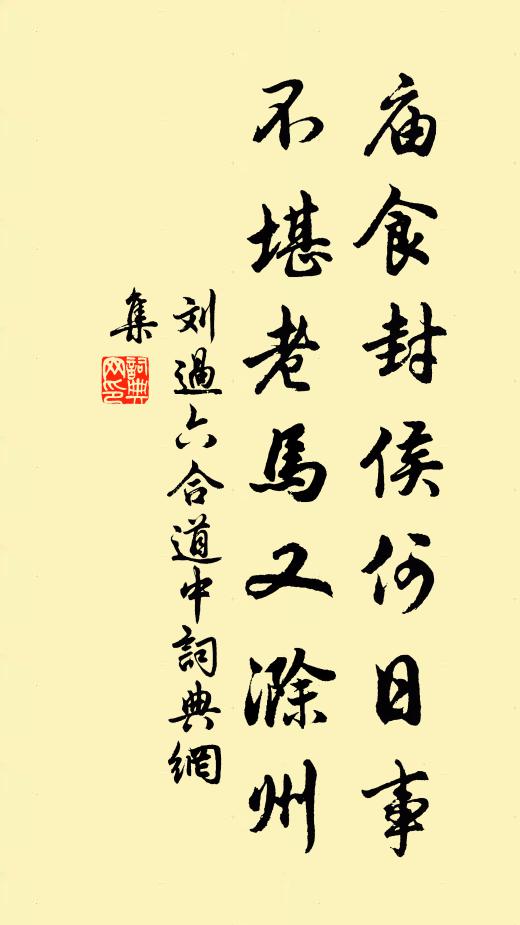 庙食封侯何日事
不堪老馬又滁州
刘過六合道中詞典網
集
詞典
网印